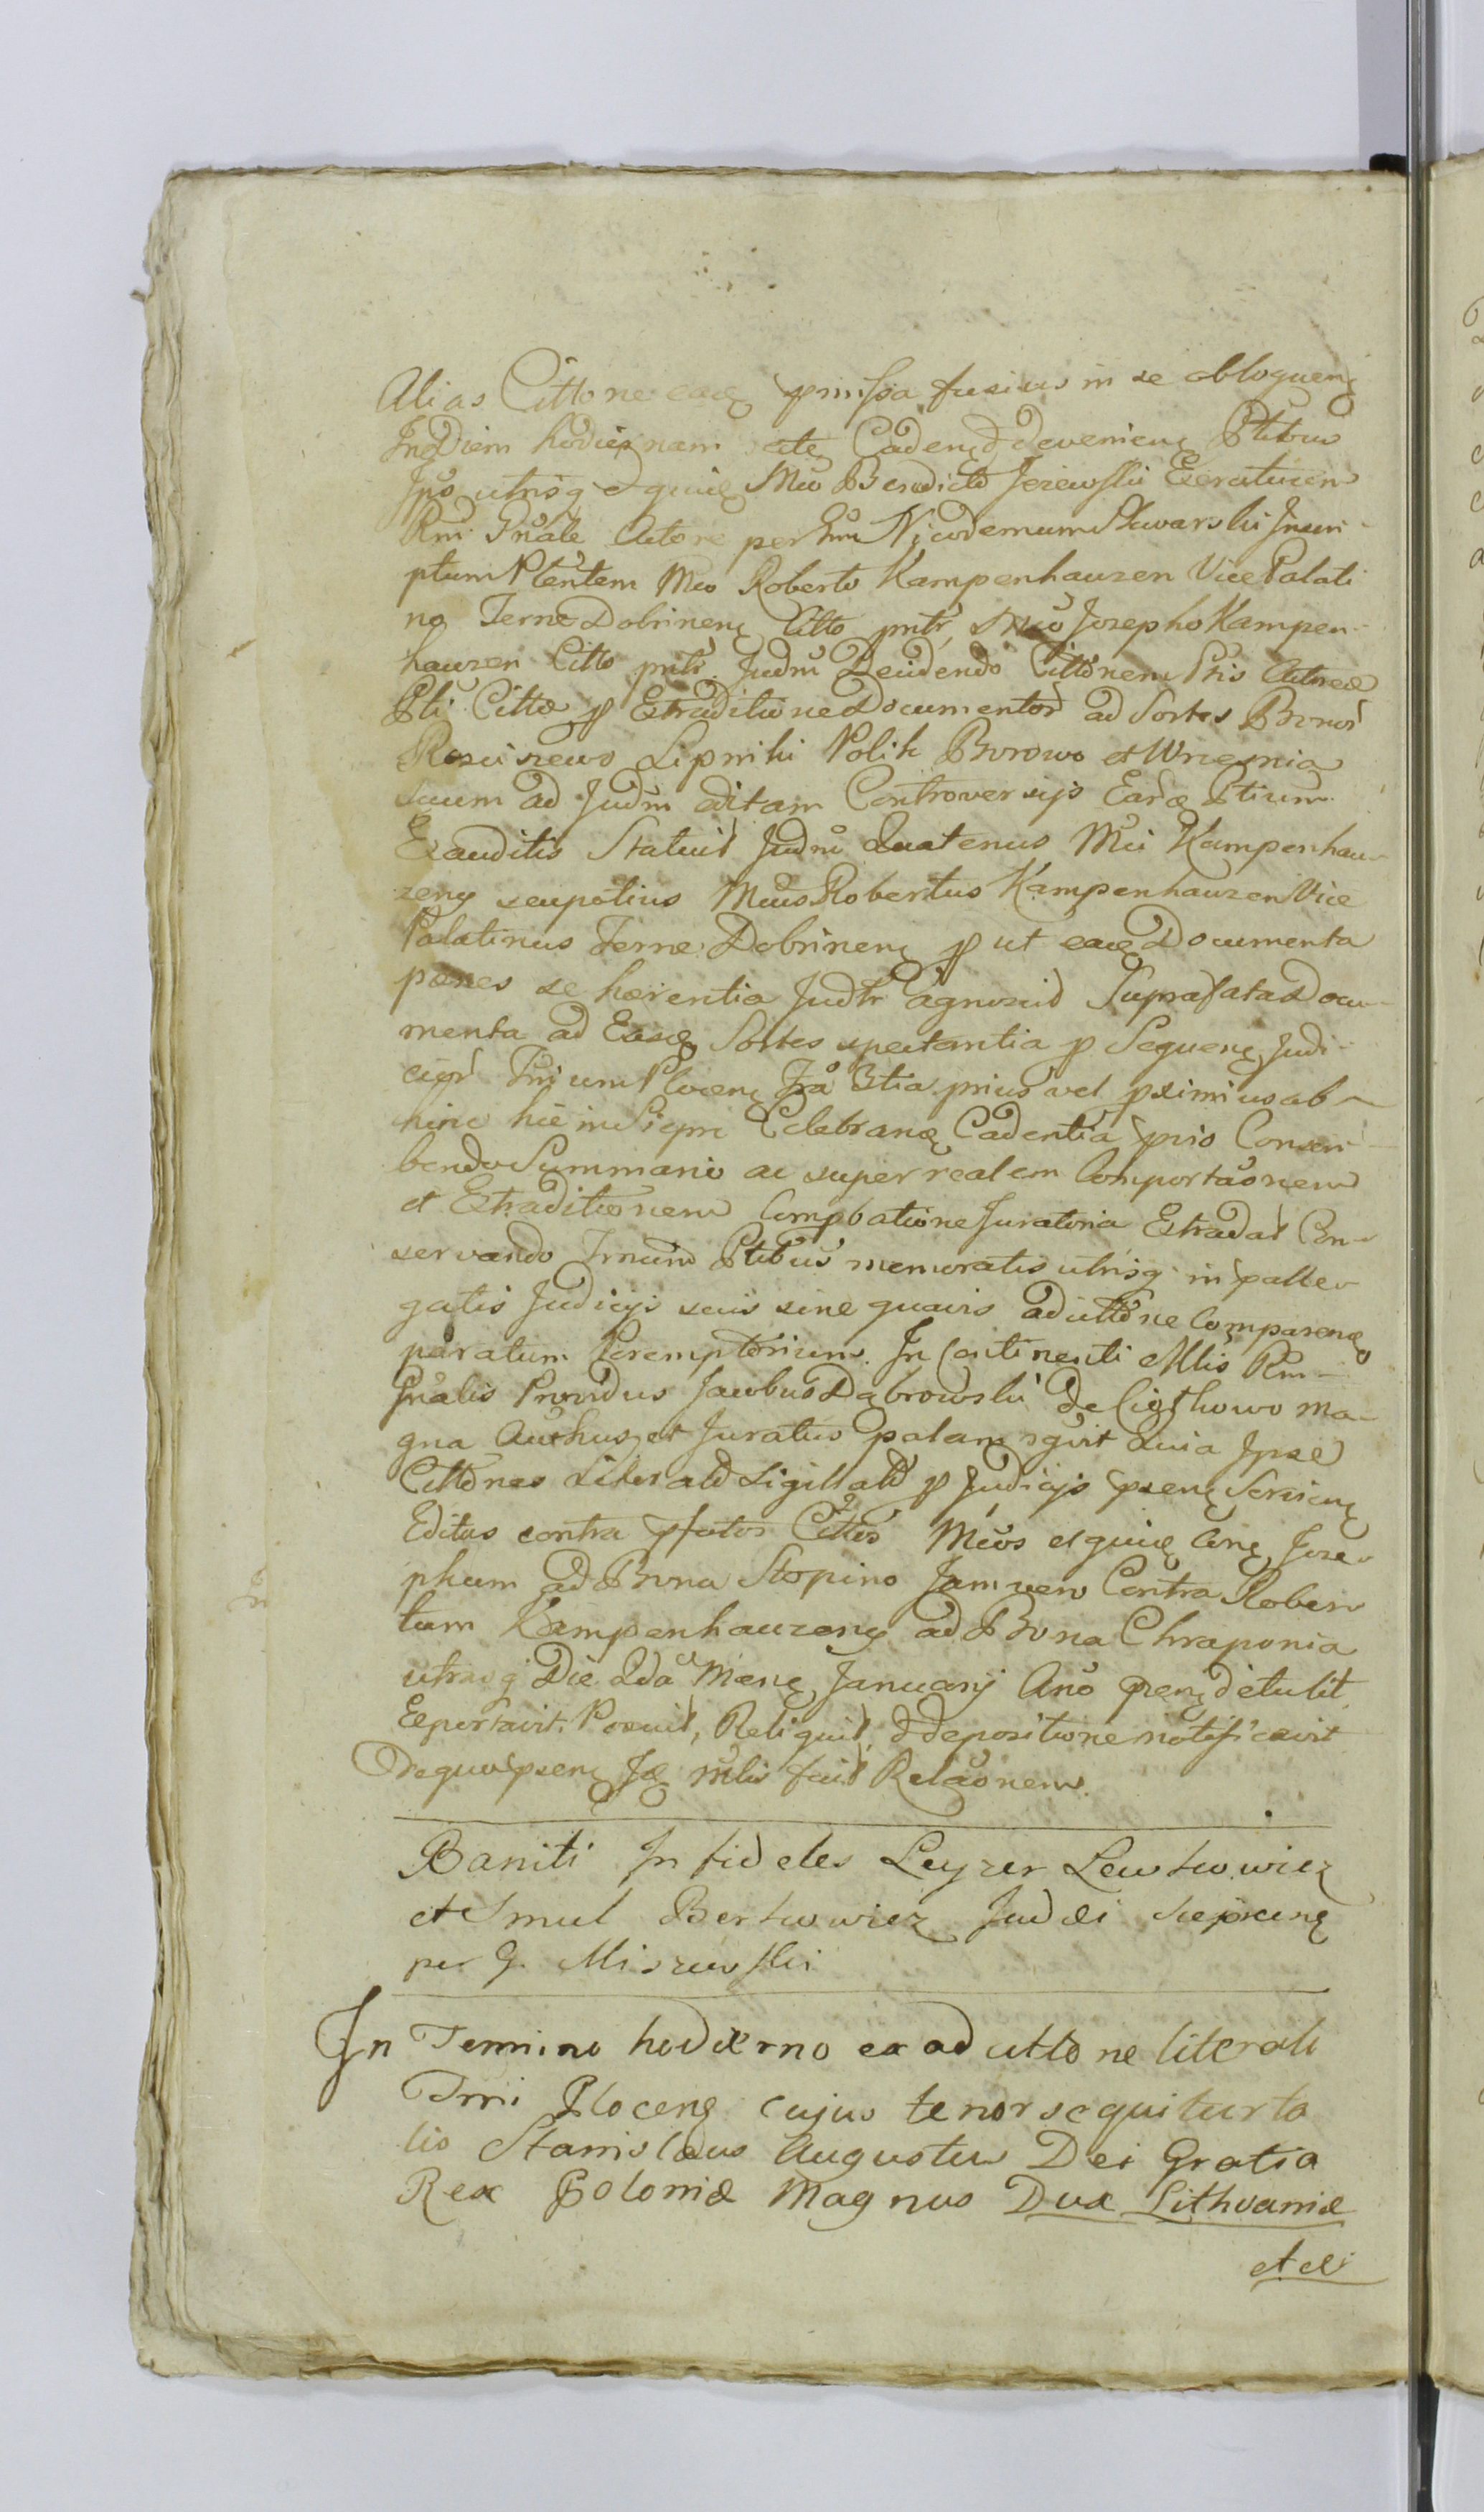 Alias Cittone eade pmissa fusius in se obloquen
In Diem hodiernam Caden & devenien Ptibus
Ipis utrisq Mco Benedicto Jezewski Exercituum
Rni Gnale Actore per Nicodemum Skwarski Inscri-
ptum Plentem Mco Roberto Kampenhauzen Vice Palati
no Terrae Dobrinen Citto pntr, & Mco Josepho Kampen-
hauzen Citto pntr. Judm Decidendo Cittonem Ptis Actreae
Pti Cittae p Extraditione Documentor ad Sortes Bonor
Rosciszewo Lipniki Polik Borowo et Wrzesnia
suum ad Judm aditam Controversijs Ear Ptium
Exauditis Statuit Judm Quatenus Mci Kampenhau-
zeny seu potius Mcus Robertus Kampenhauzen Vice
Palatinus Terrae Dobrinen p ut eade Documenta
paenes se haerentia Judtr agnoscit Suprafata Docu-
menta ad Easde Sortes spectantia p Sequen Judi-
cior Trium Plocen Fra 3tia prius vel pximius ab-
hinc hic in Siepc Celebran Cadentia prio Conscri-
bendo Summario ac super realem Comportaonem
et Extraditionem Compbatione Juratoria Extradat Con-
servando Trnum Ptibus memoratis utrisq in palle-
gatis Judicijs seu sine quavis adcittone Comparen
paratum Peremptorium. In Continenti Mtis Rni
Gnalis Providus Jacobus Dąbrowski De Ligthowo Ma-
gna et Juratus palam rgvit Quia Ipse
Cittones Literales Sigillat p Judicijs psen Servien
Editas contra pfatos Cittos Mcos Jose-
phum ad Bona Stopino Jam vero Contra Rober-
tum Kampenhauzeny ad Bona Chraponia
utrasq Die 2da Mens Januarij Ano psen detulit
Exportavit. Posuit, Reliquit, & de positione notificavit
De quo psen suam fecit Relaonem.
Baniti Infideles Leyzer Lewkowicz
et Smul Berkowicz Judaei Siepscen
per G. Miszewski
In Termino hodierno ex adcittone literali
Trri Plocen cujus tenor sequitur ta
lis Stanislaus Augustus Dei Gratia
Rex Poloniae Magnus Dux Lithvaniae
et ce